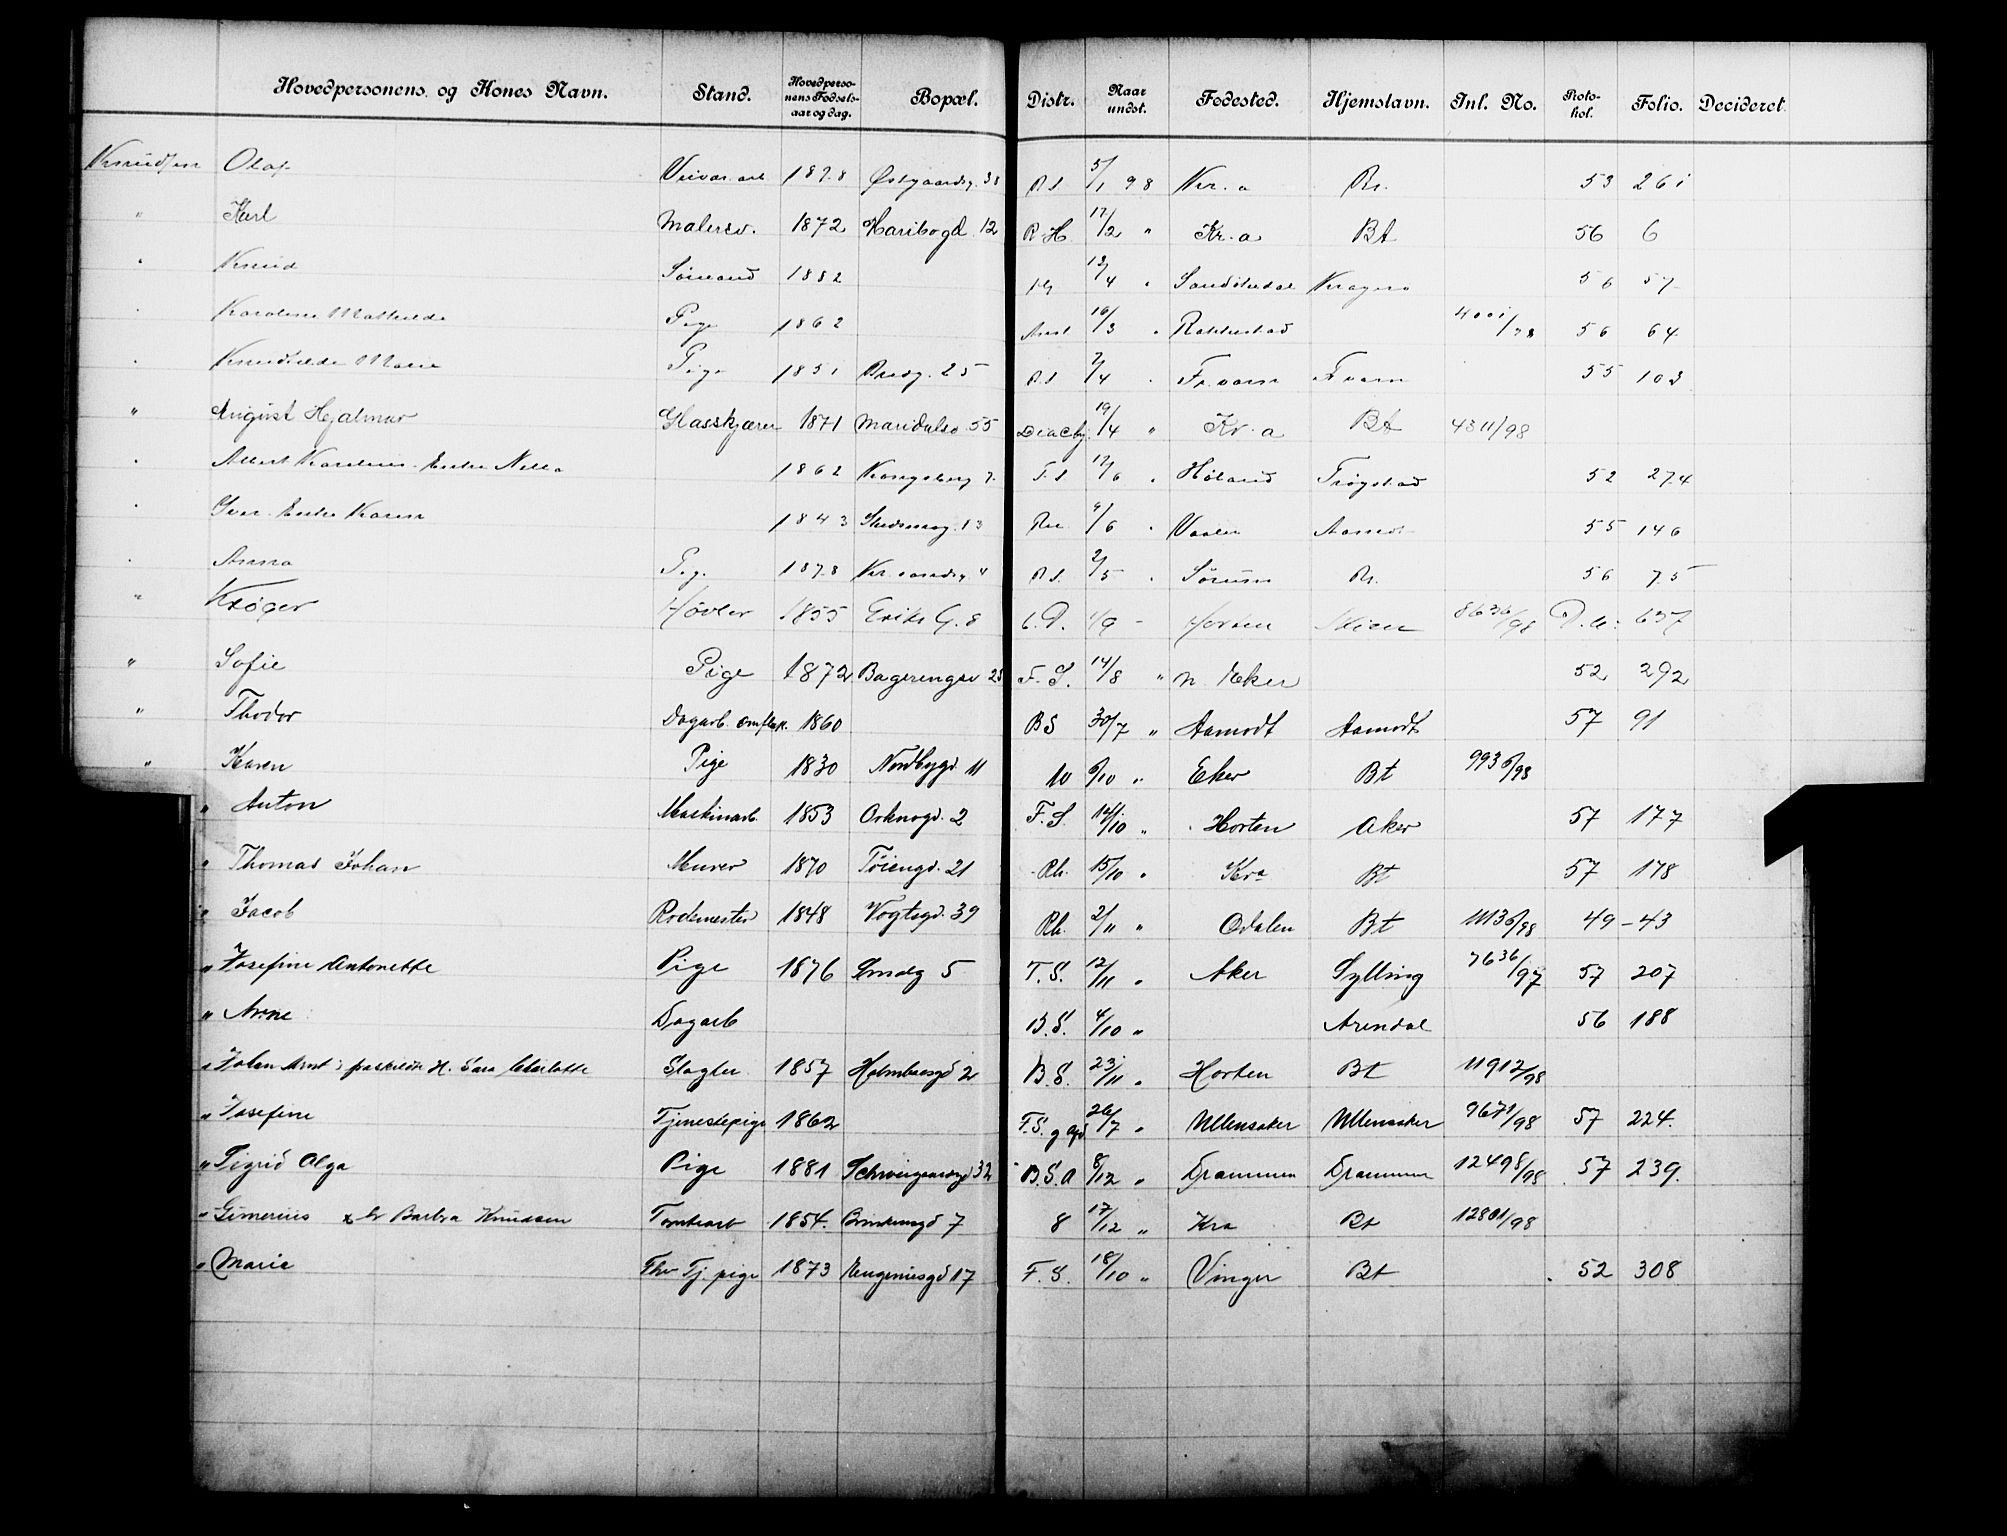 Hovedpersonens og Kones Navn. Stand. Hovedpersonens Fødselsaar og dag. Bopæl. Distr. Naar undst. Fødested. Hjemstavn. Inl. No. Protokol. Folio. Decideret.
Knudsen Olaf 1878 Østgaardsg. 38 B S 5/1 98 Kr.a Bt. 53 261
" Karl Malersv. 1872 Maribogd. 12 R.H. 17/2 " Kr.a Bt 56 6
" Knud Sømand 1882 13/4 " Sandøkedal Kragerø 56 57
" Karoline Mathilde Pige 1862 16/3 " Rakkestad 4001/98 56 64
" Marie Pige 1851 Bredg. 25 B.S 7/4 " Kvam 55 103
" August Hjalmar Glasskjærer 1871 Maridalsv. 55 19/4 " Kr.a Bt 4311/98
" Albert Karelius. Enke Nilla 1862 Kongsberg 7. F.S 17/6 " Høland Trøgstad 52 274
" Iver. Enke Karen 1843 13 9/6 " Vaaler Aamot 55 146
" Anna Pig. 1878 Kr.sandsg. 4 B S. 2/5 " Sørum Bt. 56 75
" Krøger Høvler 1855 Eriks G. 8 6.D. 1/9 " Horten Skien 8636/98 D.A. 657
" Sofie Pige 1872 Bagerengsv 25 F.S. 14/8 " N. Eker 52 292
" Thodor Dagarb. omflak. 1860 BS 30/7 " Aamodt Aamodt 57 91
" Karen Pige 1830 Nordbygd 11 10 6/10 " Eker Bt 9936/98
" Anton Maskinarb. 1853 Orknogd. 2 F.S. 14/10 " Horten Aker 57 177
" Thomas Johan Murer 1870 Tøiengd. 21 Rh. 15/10 " Kra Bt 57 178
" Jacob Rodemester 1848 Vogtsgd. 39 Rh. 2/11 " Odalen Bt 11136/98 49-43
" Josefine Antonette Pige 1876 Smedg 5 F.S. 12/11 " Aker Sylling 7636/97 57 207
" Arne Dagarb B.S. 4/10 " Arendal 56 188
" Johan Arnt, fraskildt H. Sara Charlotte Slagter 1857 Holmboesgd 2 B.S. 23/11 " Horten Bt 11912/98
" Josefine Tjenestepige 1862 F.S. 26/7 " Ullensaker Ullensaker 9671/98 57 224.
" Sigrid Olga Pige 1881 Schweigaardsgd 32 B.S.A 8/12 " Drammen Drammen 12498/98 57 239.
" Gimerius Barbra Knudsen Tomtearb 1854. Brinkensgd 7 8 17/12 " Kra Bt 12801/98
" Marie Fhv Tj. pige 1873 Eugeniesgd 17 F.S. 18/10 " Vinger Bt 52 308